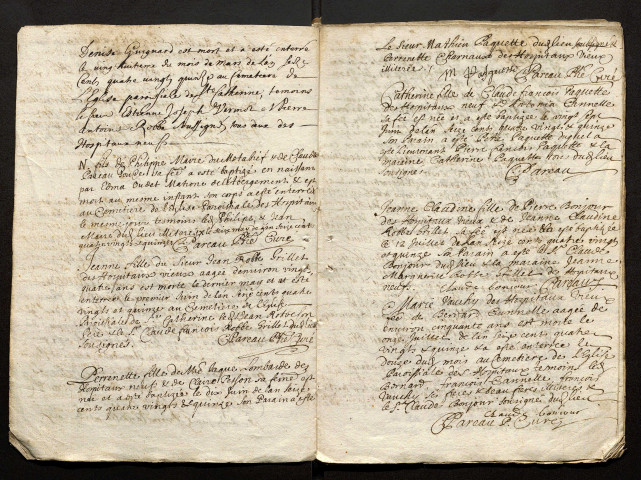 Denise Guignard est mort et a esté enterré
le vingthuitieme du mois de Mars de lan seize
cents quatre vingt quinze au cemetiere de
l'Eglise parroissiale de Ste Catherine, temoins
Estienne Joseph Vermot et Pierre
Antoine Robbe soussignés tous deux des
Hospitaux neufs
N. fils de Philippe Maire du Metabief et de Claude
Pareau sa feme a esté baptizé en naissant
par Edma Oudet Matrone et est
mort au mesme instant son corps a esté enterré
au Cemetiere de l'Eglise Parochiale des Hospitaux
le mesme jour temoins les Philippe et Jean
Maire du lieu
quatre vingts et quinze. C Pareau Ptre Curé
Jeanne fille du Sieur Jean Robbe Grillet
des Hospitaux vieux aagée denviron vingt
quatre ans est morte le dernier may et at esté
enterrée le premier Juin de lan seize cents quatre
vingts et quinze au Cemetiere de l'Eglise
Parochiale de Ste Catherine
Claude francois Robbe Grillet du lieu
soussignés.
C Pareau Ptre Curé
Perrenette fille de Lombardet des
Hopitaux neufs et de Claire sa feme est
née et a esté baptizée le dix Juin de lan seize
cents quatre vingts et quinze son Parain a esté
Le Sieur Mathieu Paquette du lieu soussigné et
Perrenette Charnaux des Hospitaux vieux
illiterée. M Paquette C Pareau Ptre Curé
Catherine fille de Claude francois Paquette
des Hopitaux neufs et Antoinia Tannelle
sa feme est née et a esté baptizée le vingt sept
Juin de lan Seize cents quatre vingts et quinze
son Parain a esté
le Lieutenant Pierre Paquette et la
maraine Catherine Paquette tous du lieu
soussigné.
C Pareau
Jeanne Claudine fille de Pierre Bonjour
des Hopitaux vieux et de Jeanne Claudine
Robbe Grillet sa feme est née et a esté baptizée
le 12 Juillet de lan seize cents quatre vingts
et quinze son Parain a esté Claude
Bonjour du lieu et la maraine Jeanne
Marguerite Robbe Grillet des Hopitaux
neufs. Claude bonjour C Pareau
Marie Vuichy des Hopitaux vieux
feme de Bernard Tannelle aagée de
environ cinquante ans est morte le
onze Juillet de lan seize cents quatre
vingts et quinze et a esté enterrée le
douze du mois au Cemetiere de l'Eglise
Parochiale des Hopitaux temoins les
Bernard francois Tannelle francois
Vuichy ses freres et beau frere illiterés et
le Sr Claude Bonjour soussigné du lieu
Claude bonjour
C Pareau P. Curé